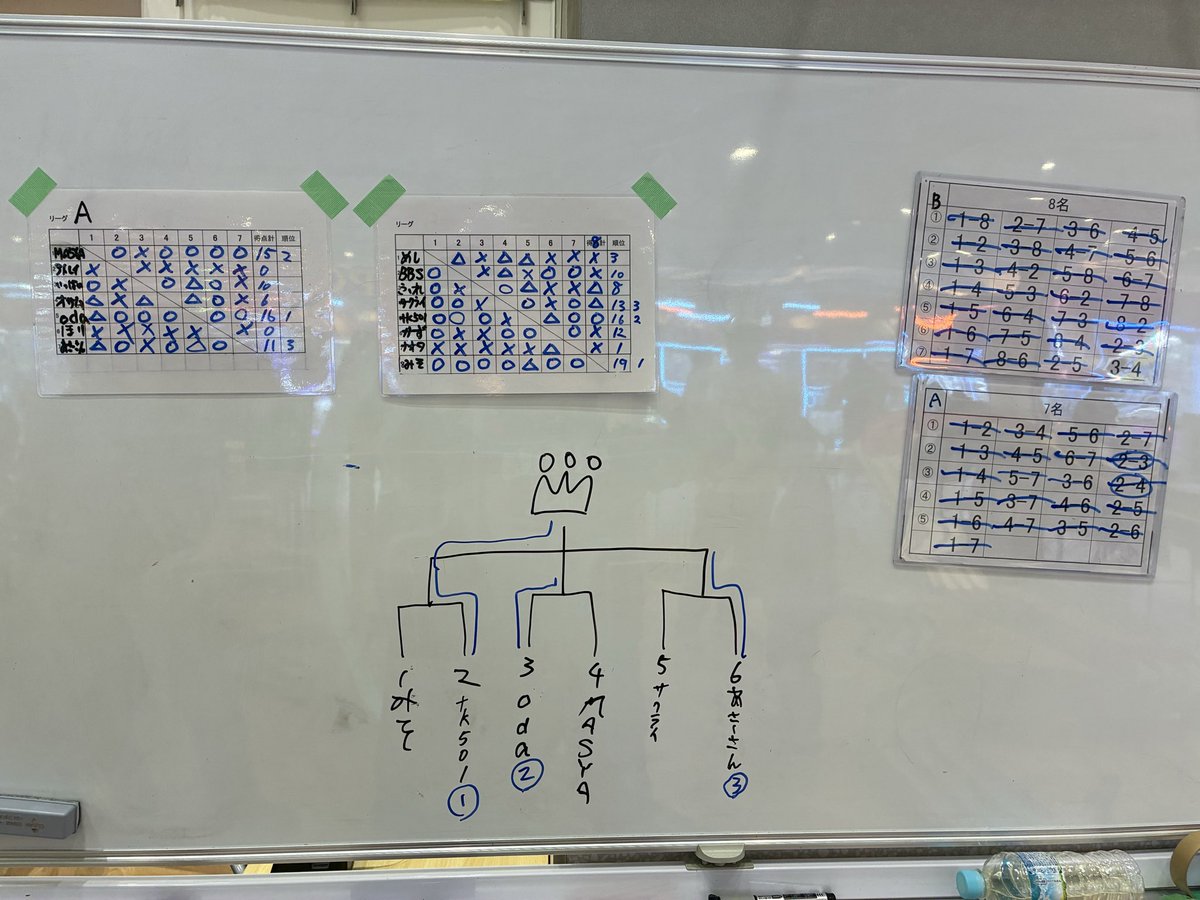 リーグ A
1 2 3 4 5 6 7 得点計 順位
MASYA ○ X ○ ○ ○ ○ 15 2
X X X X X X 0
○ X ○ △ ○ X 10
△ X △ X ○ X 6
oda △ ○ ○ ○ ○ ○ 16 1
X X X X X X 0
△ ○ X ○ △ ○ 11 3
リーグ
1 2 3 4 5 6 7 8 得点計 順位
めし △ X △ △ X X X 3
BBS ○ X △ X ○ ○ X 10
○ X ○ △ X X △ 8
サクライ ○ ○ X ○ X ○ △ 13 3
tk501 ○ ○ ○ X ○ ○ X 16 2
かず ○ X ○ X ○ ○ X 12
X X X X X △ X 1
みそ ○ ○ ○ ○ △ ○ ○ 19 1
B 8名
① 1-8 2-7 3-6 4-5
② 1-2 3-8 4-7 5-6
③ 1-3 4-2 5-8 6-7
④ 1-4 5-3 6-2 7-8
⑤ 1-5 6-4 7-3 8-2
⑥ 1-6 7-5 8-4 2-3
⑦ 1-7 8-6 2-5 3-4
A 7名
① 1-2 3-4 5-6 2-7
② 1-3 4-5 6-7 2-3
③ 1-4 5-7 3-6 2-4
④ 1-5 3-7 4-6 2-5
⑤ 1-6 4-7 3-5 2-6
1-7
1 みそ
2 tk501 ①
3 oda ②
4 MASYA
5 サクライ
6 あさーさん ③